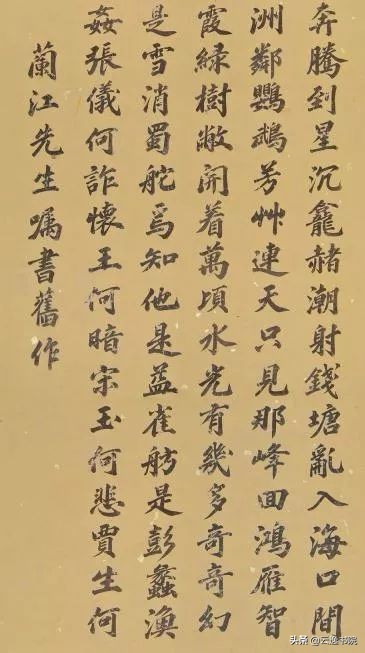 奔騰到星沉龕赭潮射錢塘亂入海口間
洲鄰鸚鵡芳艸連天只見那峰回鴻雁智
霞綠樹敞開着萬頃水光有幾多奇奇幻
是雪消蜀舵焉知他是益雀舫是彭蠡漁
姦張儀何詐懷王何暗宋玉何悲賈生何
蘭江先生囑書舊作
头条 @云逸书院